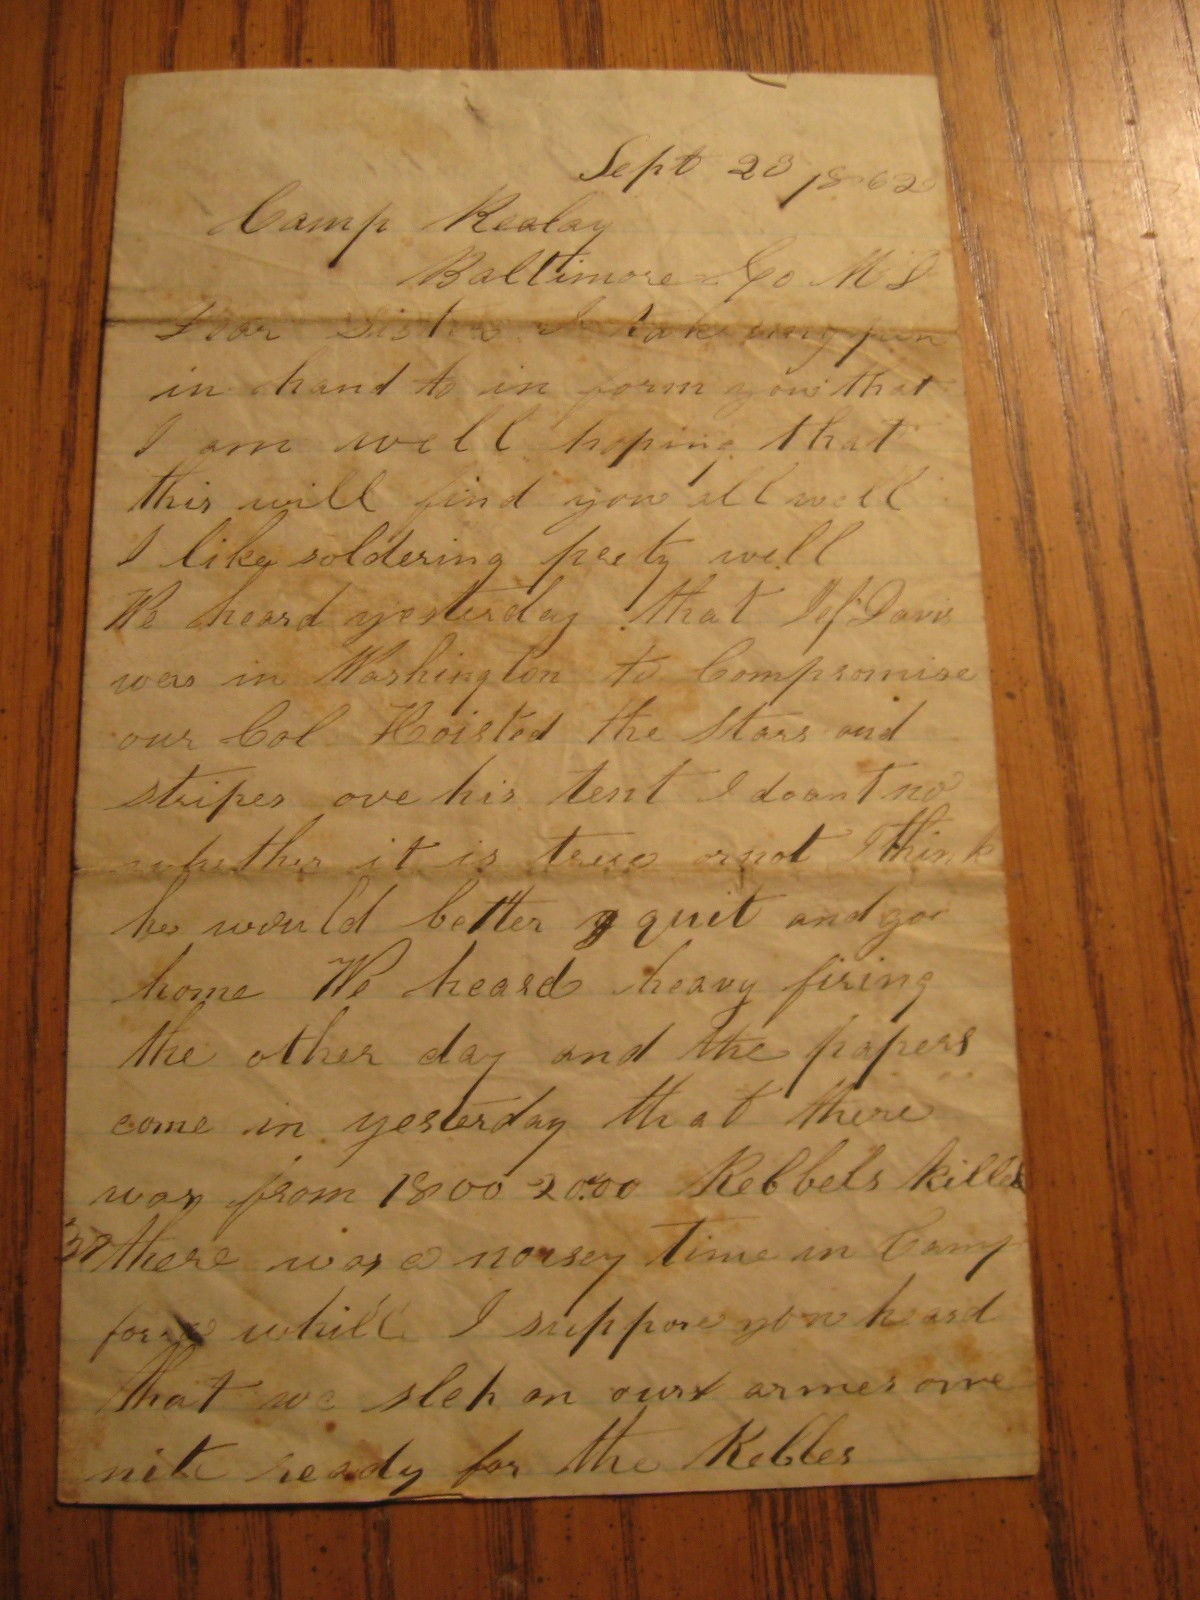 Sept 23 1862
Camp
Baltimore Co Md
Dear Sister I take my pen
in hand to in form you that
I am well hoping that
this will find you all well
I like soldering peety well
We heard yesterday that Jef Davis
was in Washington to Compromise
our Col Hoisted the Stars and
stripes ove his tent I doant no
whether it is treue or not I think
he would better quit and go
home We heard heavy firing
the other day and the papers
come in yesterday that there
was from 1800 2000 Rebbels killed
there was a noisey time in Camp
for a while I suppose you heard
that we slep on ours armes one
nite ready for the Rebbles